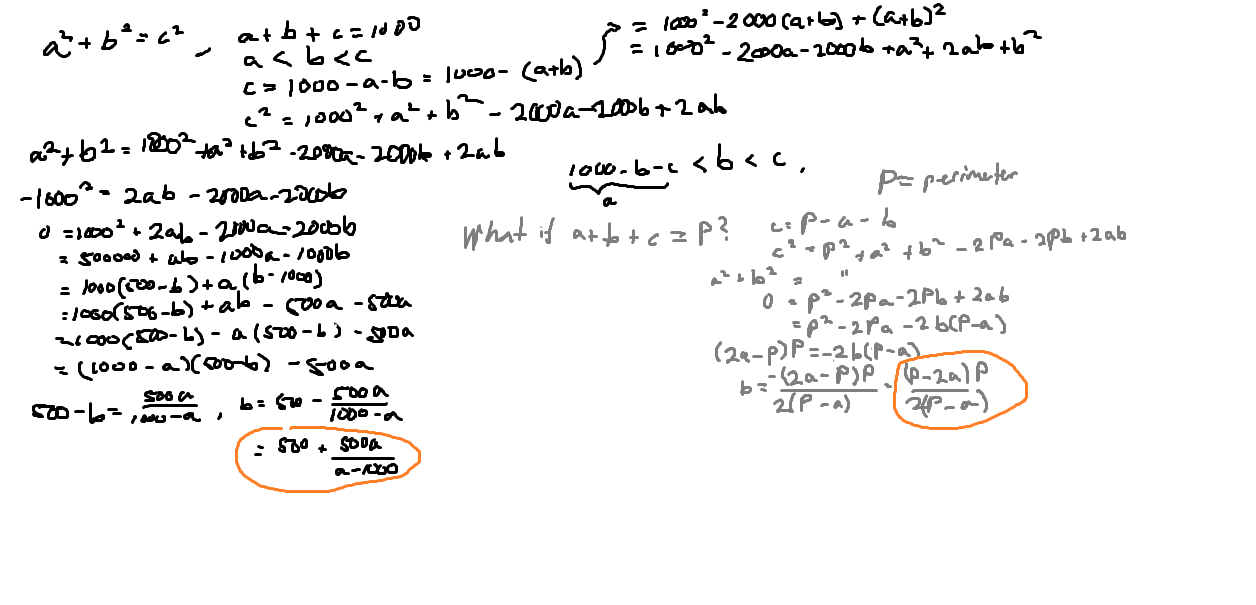 a² + b² = c² , a + b + c = 1000
a < b < c
c = 1000 - a - b = 1000 - (a+b)
= 1000² - 2000(a+b) + (a+b)²
= 1000² - 2000a - 2000b + a² + 2ab + b²
c² = 1000² + a² + b² - 2000a - 200b + 2ab
a² + b² = 1000² + a² + b² - 2000a - 2000b + 2ab
-1000² = 2ab - 2000a - 2000b
0 = 1000² + 2ab - 2000a - 2000b
= 500000 + ab - 1000a - 1000b
= 1000(500 - b) + a(b - 1000)
= 1000(500 - b) + ab - 500a - 500a
= 1000(500 - b) - a(500 - b) - 500a
= (1000 - a)(500 - b) - 500a
500 - b = 500a / 1000 - a , b = 500 - 500a / 1000 - a
= 500 + 500a / a - 1000
1000 - b - c < b < c ,
a
P = perimeter
What if a + b + c = P? c = P - a - b
c² = P² + a² + b² - 2Pa - 2Pb + 2ab
a² + b² = "
0 = P² - 2Pa - 2Pb + 2ab
= P² - 2Pa - 2b(P - a)
(2a - P)P = -2b(P - a)
b = -(2a - P)P / 2(P - a) = (P - 2a)P / 2(P - a)